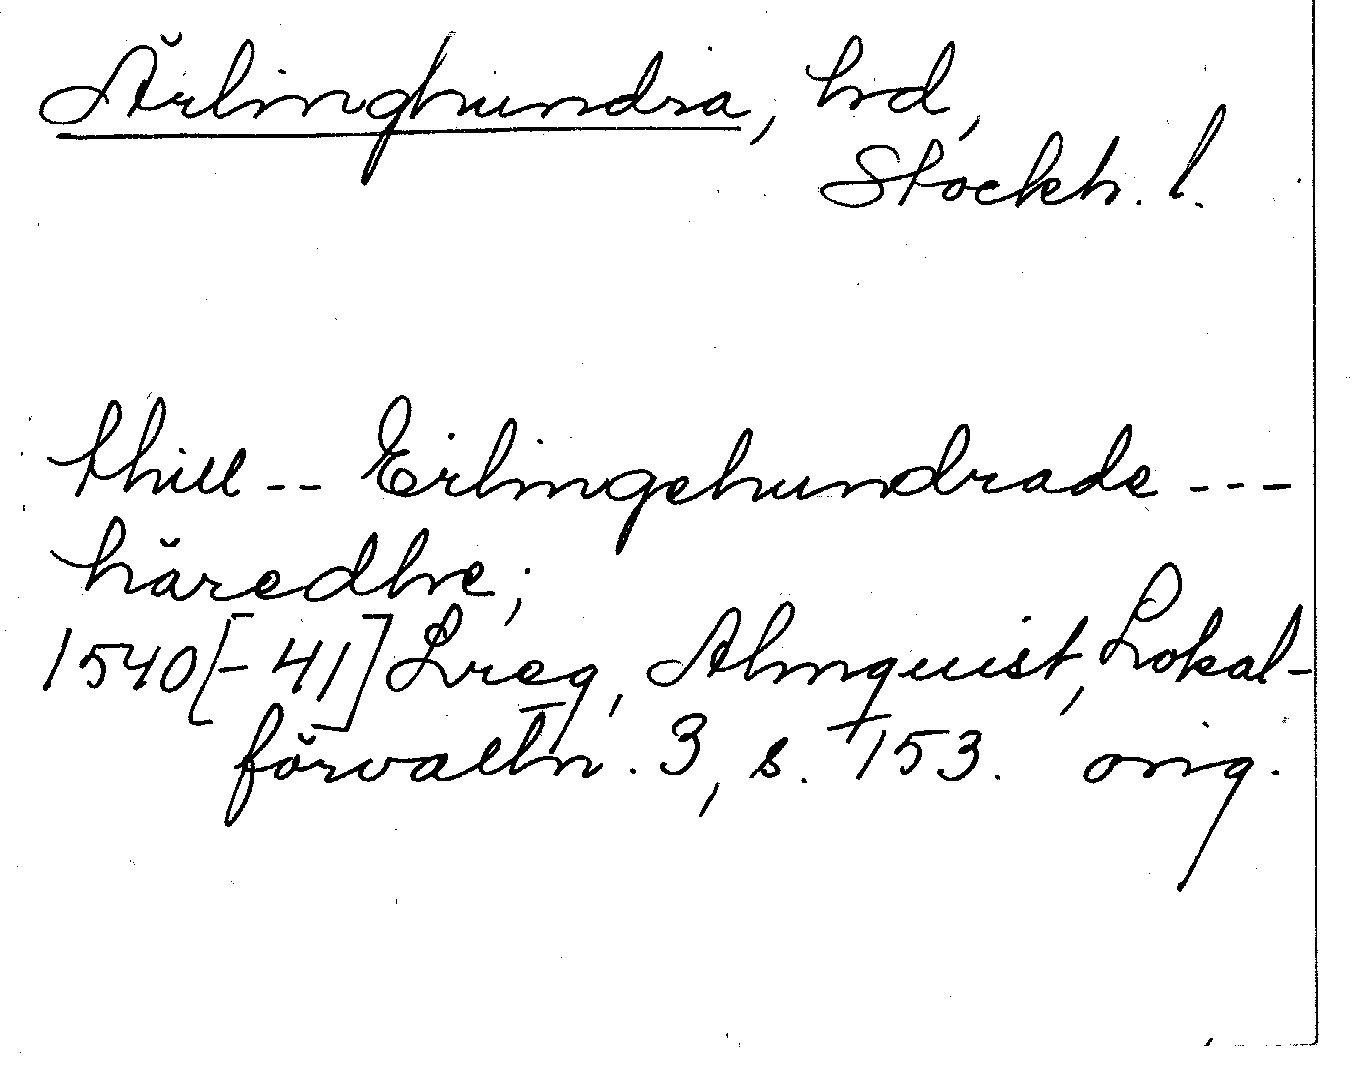 Ärlinghundra, hd,
Stockh. l.
thill -- Erlingehundrade ---
häredhe;
1540[-41] Lreg, Almquist, Lokal-
förvaltn. 3, s. 153. orig.